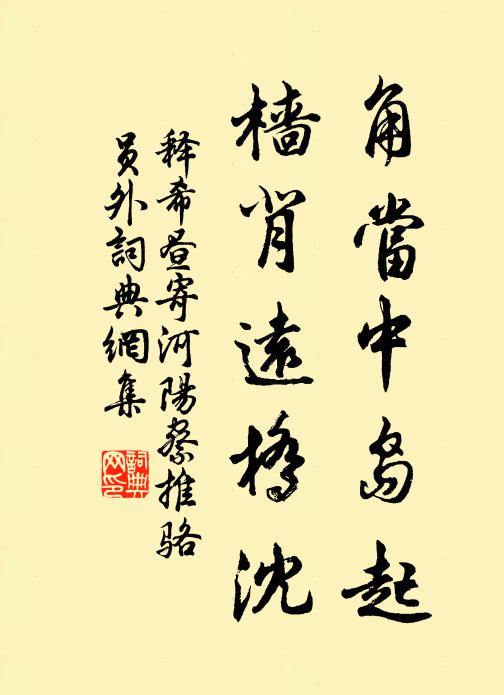 角當中島起
檣背遠橋沈
释希昼寄河陽察推骆
員外詞典網集
詞典
网印